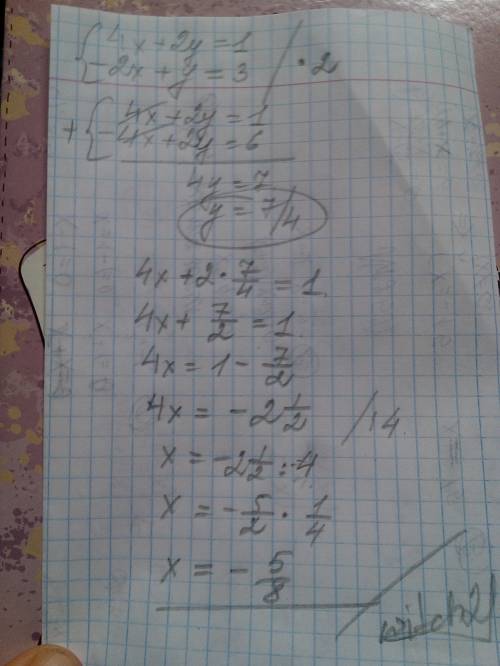 { 4x + 2y = 1
-2x + y = 3 / · 2
+ { 4x + 2y = 1
-4x + 2y = 6
4y = 7
y = 7/4
4x + 2 · 7/4 = 1
4x + 7/2 = 1
4x = 1 - 7/2
4x = -2 1/2 / : 4
x = -2 1/2 : 4
x = -5/2 · 1/4
x = -5/8